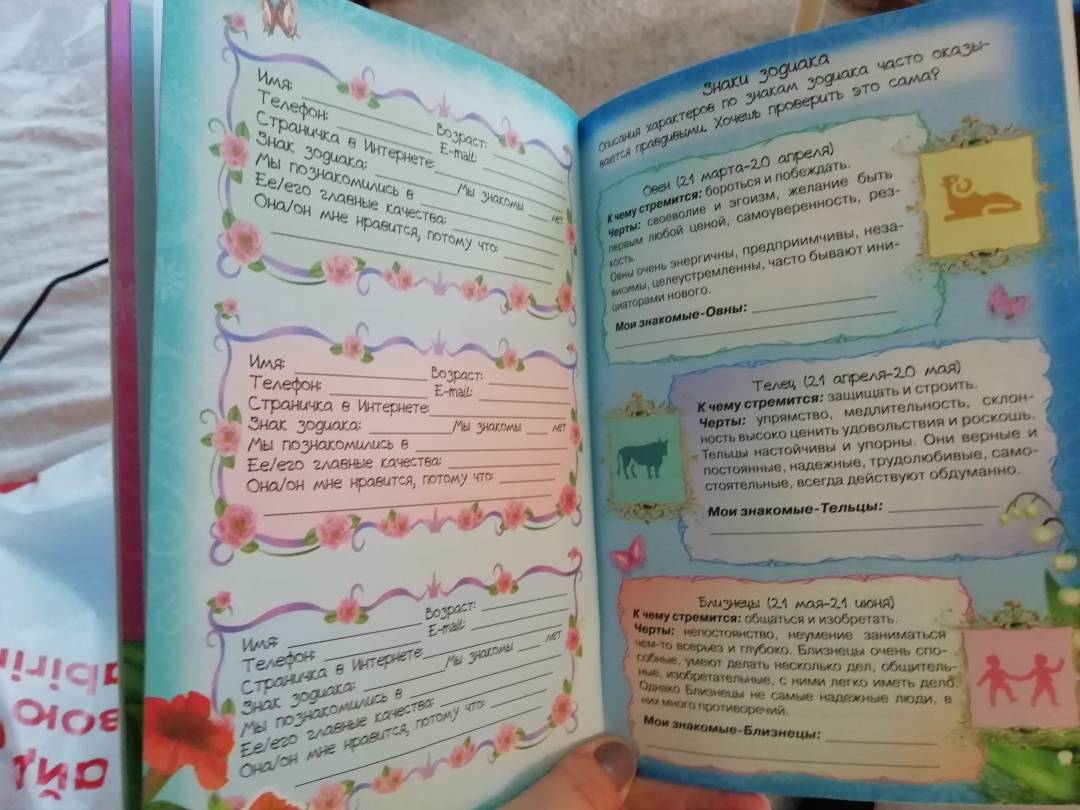 Имя:
Телефон: Возраст:
Страничка в Интернете: E-mail:
Знак зодиака: Мы знакомы лет
Мы познакомились в
Ее/его главные качества:
Она/он мне нравится, потому что:
Имя: Возраст:
Телефон: E-mail:
Страничка в Интернете:
Знак зодиака: Мы знакомы лет
Мы познакомились в
Ее/его главные качества:
Она/он мне нравится, потому что:
Имя: Возраст:
Телефон: E-mail:
Страничка в Интернете:
Знак зодиака: Мы знакомы лет
Мы познакомились в
Ее/его главные качества:
Она/он мне нравится, потому что:
Знаки зодиака
Описания характеров по знакам зодиака часто оказы-
ваются правдивыми. Хочешь проверить это сама?
Овен (21 марта-20 апреля)
К чему стремится: бороться и побеждать.
Черты: своеволие и эгоизм, желание быть
первым любой ценой, самоуверенность, рез-
кость.
Овны очень энергичны, предприимчивы, неза-
висимы, целеустремленны, часто бывают ини-
циаторами нового.
Мои знакомые-Овны:
Телец (21 апреля-20 мая)
К чему стремится: защищать и строить.
Черты: упрямство, медлительность, склон-
ность высоко ценить удовольствия и роскошь.
Тельцы настойчивы и упорны. Они верные и
постоянные, надежные, трудолюбивые, само-
стоятельные, всегда действуют обдуманно.
Мои знакомые-Тельцы:
Близнецы (21 мая-21 июня)
К чему стремится: общаться и изобретать.
Черты: непостоянство, неумение заниматься
чем-то всерьез и глубоко. Близнецы очень спо-
собные, умеют делать несколько дел, общитель-
ные, изобретательные, с ними легко иметь дело.
Однако Близнецы не самые надежные люди, в
них много противоречий.
Мои знакомые-Близнецы: